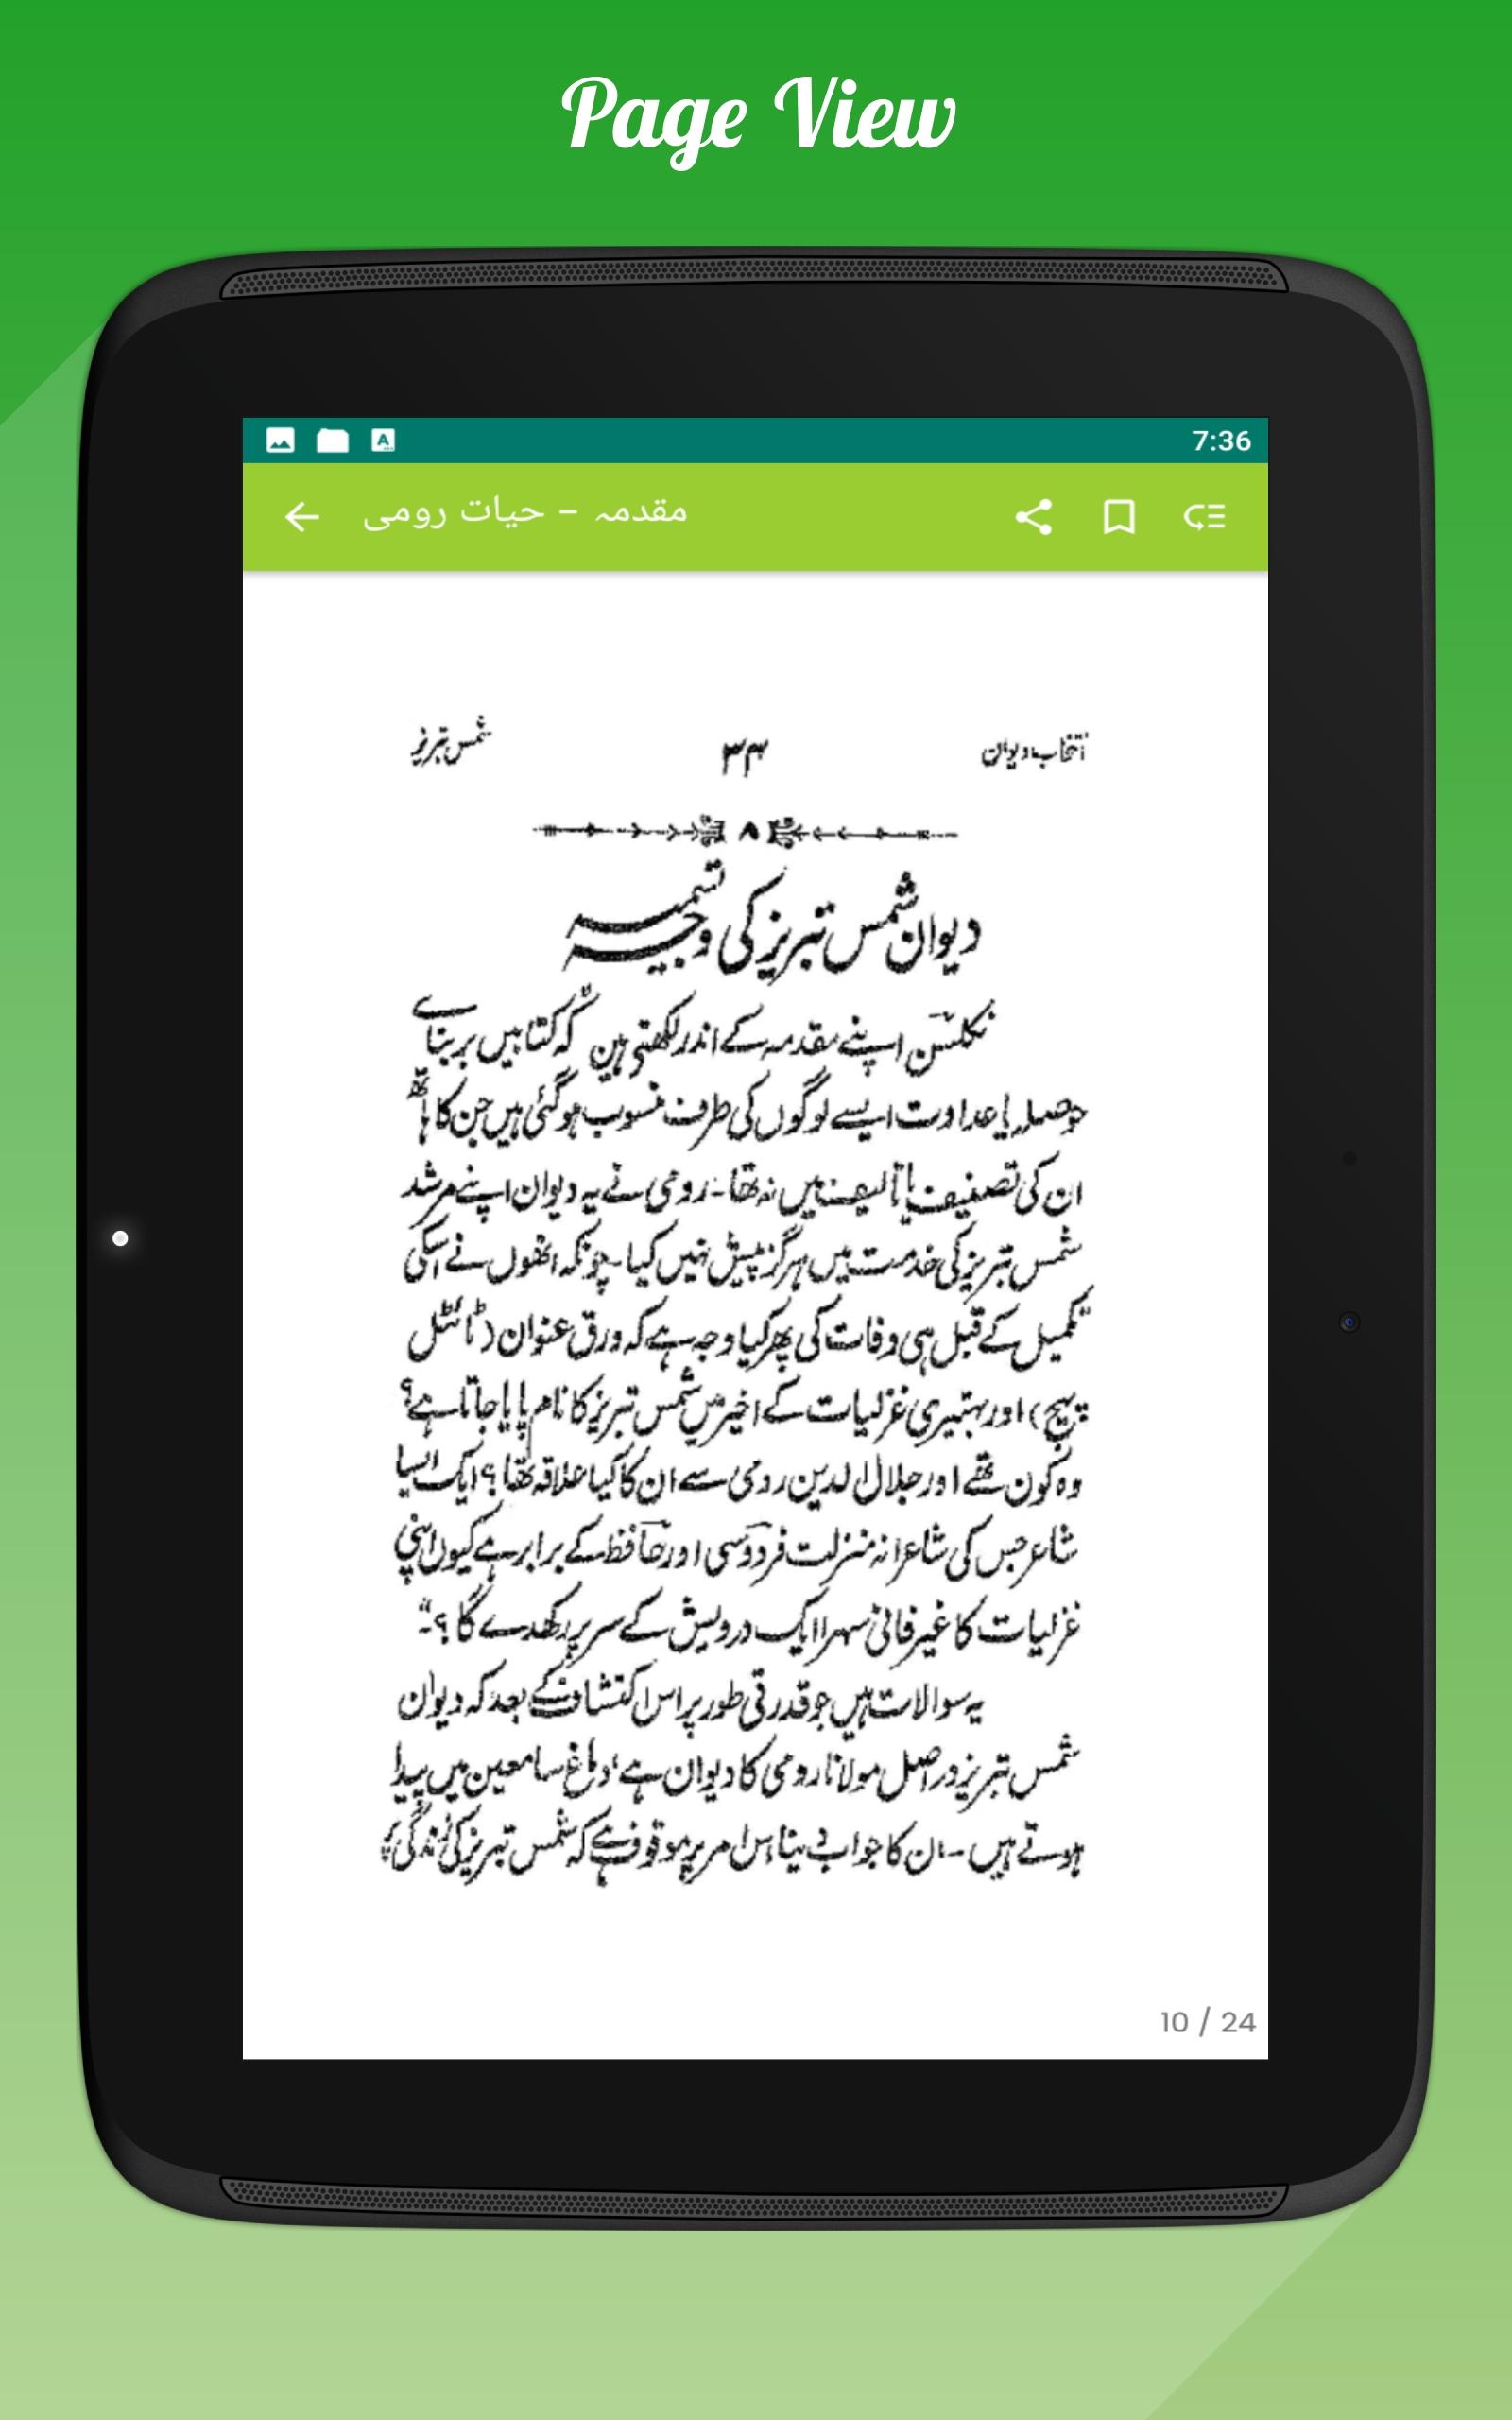 Page View
7:36
مقدمہ – حیات رومی
انتخاب دیوان
۳۴
شمس تبریز
۸
دیوان شمس تبریز کی وجہ تسمیہ
نکلسن اپنے مقدمہ کے اندر لکھتے ہیں کہ کتابیں بر بنائے
حوصلہ یا عداوت ایسے لوگوں کی طرف منسوب ہوگئی ہیں جن کا ہاتھ
ان کی تصنیف یا تالیف میں نہ تھا۔ رومی نے یہ دیوان اپنے مرشد
شمس تبریز کی خدمت میں ہرگز پیش نہیں کیا۔ چونکہ انھوں نے اسکی
تکمیل کے قبل ہی وفات کی پھر کیا وجہ ہے کہ ورق عنوان (ٹائٹل
پیج) اور بہتیری غزلیات کے اخیر میں شمس تبریز کا نام پایا جاتا ہے؟
وہ کون تھے اور جلال الدین رومی سے ان کا کیا علاقہ تھا؟ ایک ایسا
شاعر جس کی شاعرانہ منزلت فردوسی اور حافظ کے برابر ہے کیوں اپنی
غزلیات کا غیر فانی سہرا ایک درویش کے سر پر رکھدے گا؟"
یہ سوالات ہیں جو قدرتی طور پر اس اکتشاف کے بعد کہ دیوان
شمس تبریز دراصل مولانا رومی کا دیوان ہے، دماغ سامعین میں پیدا
ہوتے ہیں۔ ان کا جواب دینا اس امر پر موقوف ہے کہ شمس تبریز کی زندگی پر
10 / 24